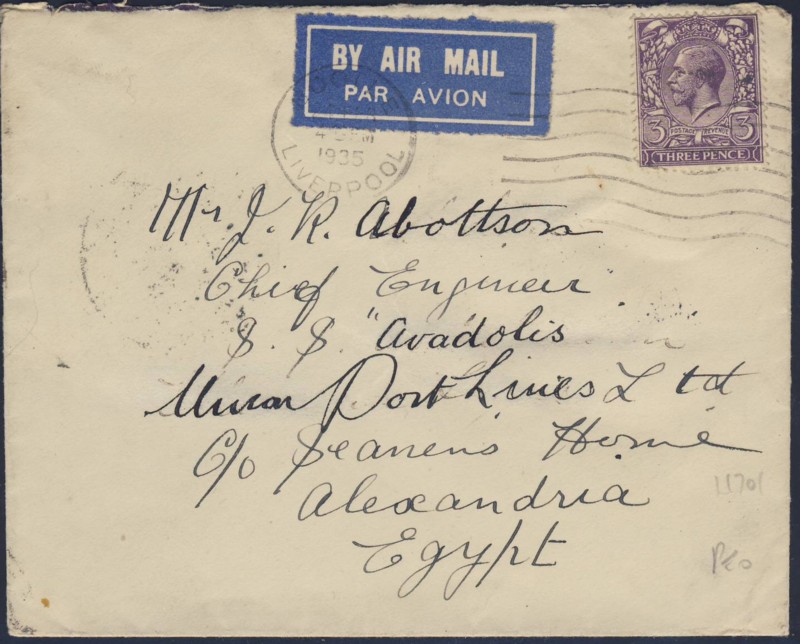 BY AIR MAIL
PAR AVION
1935
LIVERPOOL
3 POSTAGE REVENUE 3
THREE PENCE
Mr J. R. Abottson
Chief Engineer
S. S. "Avadolis
Port Lines Ltd
C/o Seamens Home
Alexandria
Egypt